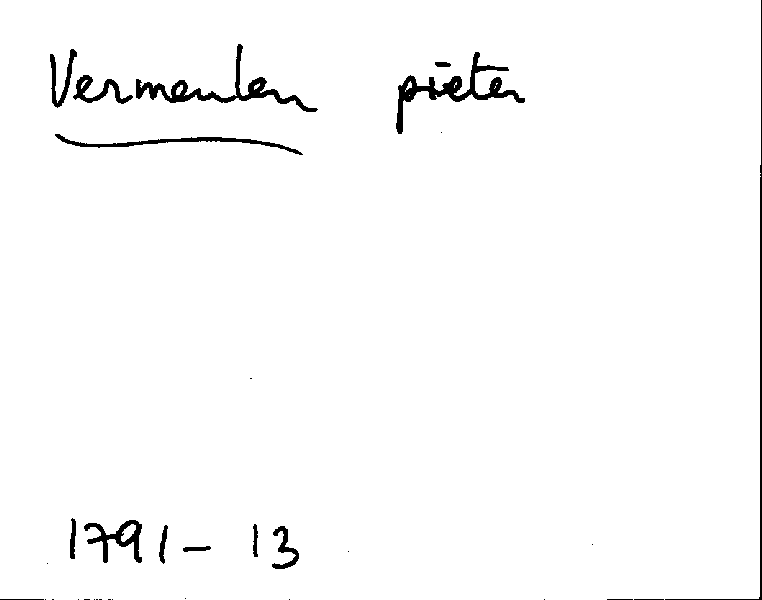 Vermeulen pieter
1791 - 13